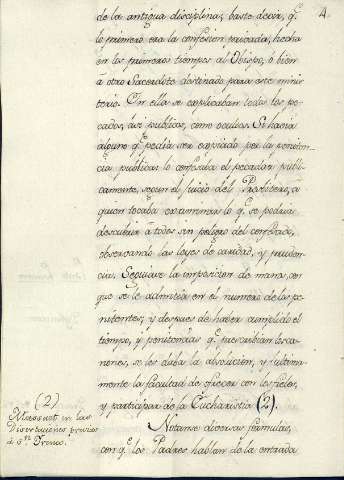 4.
de la antigua disciplina; baste decir, q.e
lo primero era la confesion privada, hecha
en los primeros tiempos al Obispo, ó bien
á otro Sacerdote destinado para este minis
terio. En ella se explicaban todos los pe
cados, asi publicos, como ocultos. Si havia
alguno q.e pedia ser expiado por la peniten
cia publica, lo confesaba el pecador publi
camente, segun el juicio del Presbitero, a
quien tocaba examinar lo q.e se podria
descubrir a todos sin peligro del confesado,
observando las leyes de caridad, y pruden
cia. Seguiase la imposicion de manos, con
que se le admitia en el numero de los pe
nitentes; y despues de haber cumplido el
tiempo, y penitencias q.e prescribian los ca
nones, se les daba la absolucion, y ultima
mente la facultad de ofrecer con los fieles,
y participar de la Eucharistia (2).
Notanse diversas formulas,
con q.e los Padres hablan de la entrada
(2)
en las
Disertaciones previas
á S.n Ireneo.